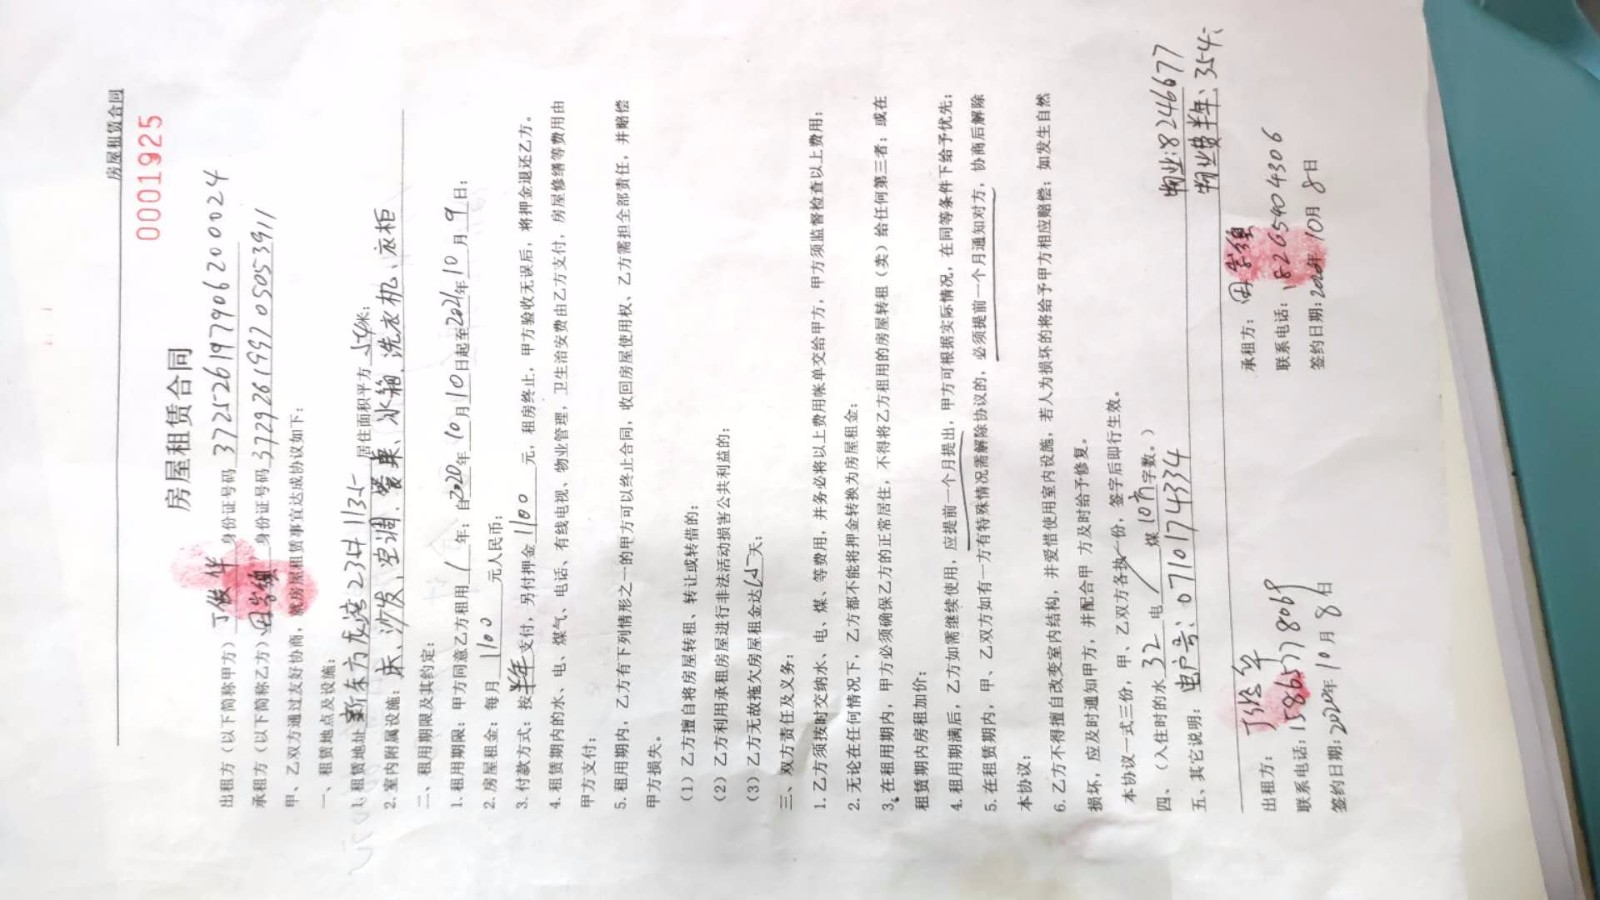 房屋租赁合同
0001925
房屋租赁合同
出租方（以下简称甲方）丁俊华 身份证号码 372526197906200024
承租方（以下简称乙方） 身份证号码 372926199705053911
甲、乙双方通过友好协商，就房屋租赁事宜达成协议如下：
一、租赁地点及设施：
1.租赁地址 新东方龙湾23# 1135 居住面积平方 54米；
2.室内附属设施：床、沙发、空调、餐桌、冰箱、洗衣机、衣柜
二、租用期限及其约定：
1.租用期限：甲方同意乙方租用 1 年；自2020年10月10日起至2021年10月9日；
2.房屋租金：每月 1100 元人民币；
3.付款方式：按半年支付，另付押金 1100 元，租房终止，甲方验收无误后，将押金退还乙方。
4.租赁期内的水、电、煤气、电话、有线电视、物业管理，卫生治安费由乙方支付，房屋修缮等费用由
甲方支付；
5.租用期内，乙方有下列情形之一的甲方可以终止合同，收回房屋使用权、乙方需担全部责任，并赔偿
甲方损失。
（1）乙方擅自将房屋转租、转让或转借的；
（2）乙方利用承租房屋进行非法活动损害公共利益的；
（3）乙方无故拖欠房屋租金达15天；
三、双方责任及义务：
1.乙方须按时交纳水、电、煤、等费用，并务必将以上费用帐单交给甲方，甲方须监督检查以上费用；
2.无论在任何情况下，乙方都不能将押金转换为房屋租金；
3.在租用期内，甲方必须确保乙方的正常居住，不得将乙方租用的房屋转租（卖）给任何第三者；或在
租赁期内房租加价；
4.租用期满后，乙方如需继续使用，应提前一个月提出，甲方可根据实际情况，在同等条件下给予优先；
5.在租赁期内，甲、乙双方如有一方有特殊情况需解除协议的，必须提前一个月通知对方，协商后解除
本协议；
6.乙方不得擅自改变室内结构，并爱惜使用室内设施，若人为损坏的将给予甲方相应赔偿；如发生自然
损坏，应及时通知甲方，并配合甲 方及时给予修复。
本协议一式三份，甲、乙双方各执一份，签字后即行生效。
四、（入住时的水 32 电 / 煤 10方字数。）
五、其它说明：电户号：0710174334
物业：8246677
物业费半年：354
出租方：丁俊华
联系电话：15865778069
签约日期：2020年10月8日
承租方：
联系电话：18265404306
签约日期：2020年10月8日